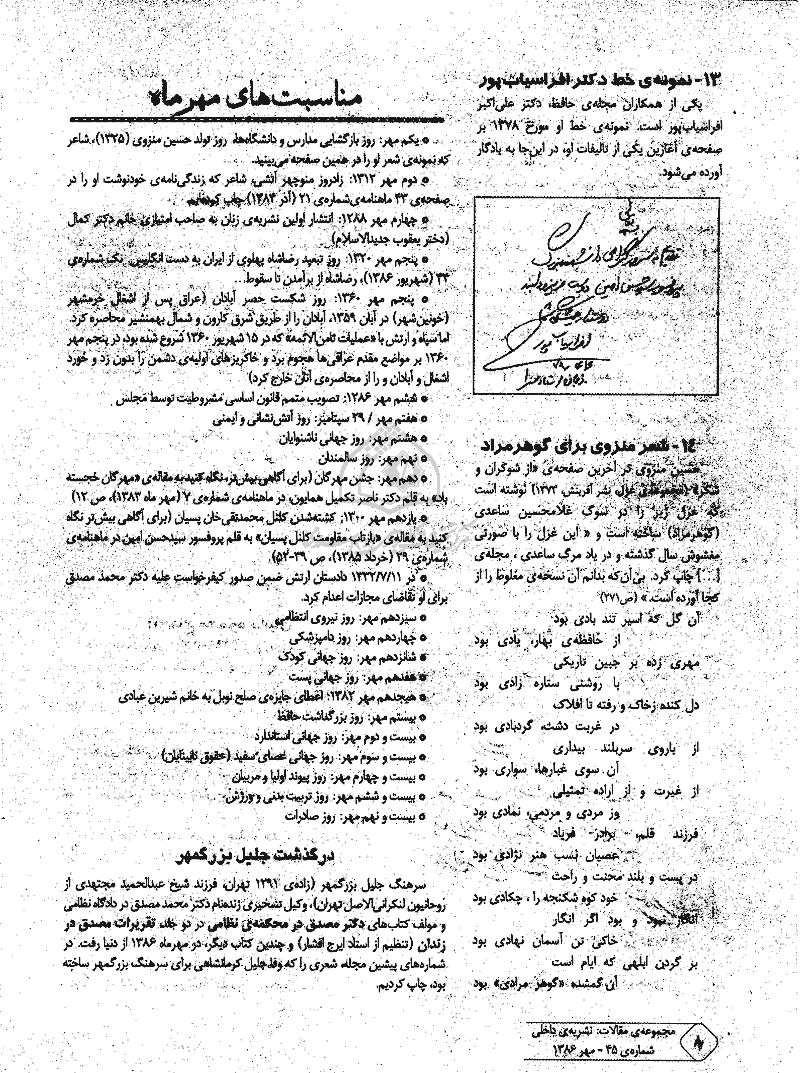 ۱۳- نمونه‌ی خط دکتر افراسیاب‌پور
یکی از همکاران مجله‌ی حافظ، دکتر علی‌اکبر
افراسیاب‌پور است. نمونه‌ی خط او مورخ ۱۳۷۸ بر
صفحه‌ی آغازین یکی از تألیفات او، در این‌جا به یادگار
آورده می‌شود.
۱۴- شعر منزوی برای گوهرمراد
حسین منزوی در آخرین صفحه‌ی «از شوکران و
شکر» (مجموعه‌ی غزل، نشر آفرینش، ۱۳۷۳) نوشته است
که غزل زیر را در سوگ غلامحسین ساعدی
(گوهرمراد) ساخته است و « این غزل را با صورتی
مغشوش سال گذشته و در یاد مرگ ساعدی ، مجله‌ی
[...] چاپ کرد. بی‌آن‌که بدانم آن نسخه‌ی مغلوط را از
کجا آورده است.» (ص۲۷۱)
آن گل که اسیر تند بادی بود
از حافظه‌ی بهار، یادی بود
مهری زده بر جبین تاریکی
با روشنی ستاره زادی بود
دل کنده زخاک و رفته تا افلاک
در غربت دشت، گردبادی بود
از باروی سربلند بیداری
آن سوی غبارها، سواری بود
از غیرت و از اراده تمثیلی
وز مردی و مردمی، نمادی بود
فرزند قلم، برادر فریاد
عصیان نسب هنر نژادی بود
در پست و بلند محنت و راحت
خود کوه شکنجه را ، چکادی بود
انگار نبود و بود اگر انگار
خاکی تن آسمان نهادی بود
بر گردن ابلهی که ایام است
آن گمشده «گوهر مرادی» بود
مناسبت‌های مهرماه
● یکم مهر: روز بازگشایی مدارس و دانشگاه‌ها، روز تولد حسین منزوی (۱۳۲۵)، شاعر
که نمونه‌ی شعر او را در همین صفحه می‌بینید.
● دوم مهر ۱۳۱۲: زادروز منوچهر آتشی، شاعر که زندگی‌نامه‌ی خودنوشت او را در
صفحه‌ی ۴۳ ماهنامه‌ی شماره‌ی ۲۱ (آذر ۱۳۸۴) چاپ کرده‌ایم.
● چهارم مهر ۱۲۸۸: انتشار اولین نشریه‌ی زنان به صاحب امتیازی خانم دکتر کمال
(دختر یعقوب جدیدالاسلام)
● پنجم مهر ۱۳۲۰: روز تبعید رضاشاه پهلوی از ایران به دست انگلیس. نک شماره‌ی
۴۴ (شهریور ۱۳۸۶)، رضاشاه از برآمدن تا سقوط...
● پنجم مهر ۱۳۶۰: روز شکست حصر آبادان (عراق پس از اشغال خرمشهر
(خونین‌شهر) در آبان ۱۳۵۹، آبادان را از طریق شرق کارون و شمال بهمنشیر محاصره کرد.
اما سپاه و ارتش با «عملیات ثامن‌الائمه» که در ۱۵ شهریور ۱۳۶۰ شروع شده بود، در پنجم مهر
۱۳۶۰ بر مواضع مقدم عراقی‌ها هجوم برد و خاکریزهای اولیه‌ی دشمن را بدون زد و خورد
اشغال و آبادان و را از محاصره‌ی آنان خارج کرد)
● ششم مهر ۱۲۸۶: تصویب متمم قانون اساسی مشروطیت توسط مجلس
● هفتم مهر / ۲۹ سپتامبر: روز آتش‌نشانی و ایمنی
● هشتم مهر: روز جهانی ناشنوایان
● نهم مهر: روز سالمندان
● دهم مهر: جشن مهرگان (برای آگاهی بیش‌تر، نگاه کنید به مقاله‌ی «مهرگان خجسته
باد» به قلم دکتر ناصر تکمیل همایون، در ماهنامه‌ی شماره‌ی ۷ (مهر ماه ۱۳۸۳)، ص ۱۲)
● یازدهم مهر ۱۳۰۰: کشته‌شدن کلنل محمدتقی‌خان پسیان (برای آگاهی بیش‌تر نگاه
کنید به مقاله‌ی «بازتاب مقاومت کلنل پسیان» به قلم پروفسور سیدحسن امین در ماهنامه‌ی
شماره‌ی ۲۹ (خرداد ۱۳۸۵)، ص ۳۹-۵۲)
● در ۱۳۳۲/۷/۱۱ دادستان ارتش ضمن صدور کیفرخواست علیه دکتر محمد مصدق
برای او تقاضای مجازات اعدام کرد.
● سیزدهم مهر: روز نیروی انتظامی
● چهاردهم مهر: روز دامپزشکی
● شانزدهم مهر: روز جهانی کودک
● هفدهم مهر: روز جهانی پست
● هیجدهم مهر ۱۳۸۲: اعطای جایزه‌ی صلح نوبل به خانم شیرین عبادی
● بیستم مهر: روز بزرگداشت حافظ
● بیست و دوم مهر: روز جهانی استاندارد
● بیست و سوم مهر: روز جهانی عصای سفید (حقوق نابینایان)
● بیست و چهارم مهر: روز پیوند اولیا و مربیان
● بیست و ششم مهر: روز تربیت بدنی و ورزش
● بیست و نهم مهر: روز صادرات
درگذشت جلیل بزرگمهر
سرهنگ جلیل بزرگمهر (زاده‌ی ۱۲۹۱ تهران، فرزند شیخ عبدالحمید مجتهدی از
روحانیون لنکرانی‌الاصل تهران)، وکیل تسخیری زنده‌نام دکتر محمد مصدق در دادگاه نظامی
و مولف کتاب‌های دکتر مصدق در محکمه‌ی نظامی در دو جلد، تقریرات مصدق در
زندان (تنظیم از استاد ایرج افشار) و چندین کتاب دیگر، دو مهرماه ۱۳۸۶ از دنیا رفت. در
شماره‌های پیشین مجله، شعری را که وفد‌جلیل کرمانشاهی برای سرهنگ بزرگمهر ساخته
بود، چاپ کردیم.
مجموعه‌ی مقالات: نشریه‌ی داخلی
شماره‌ی ۴۵ - مهر ۱۳۸۶